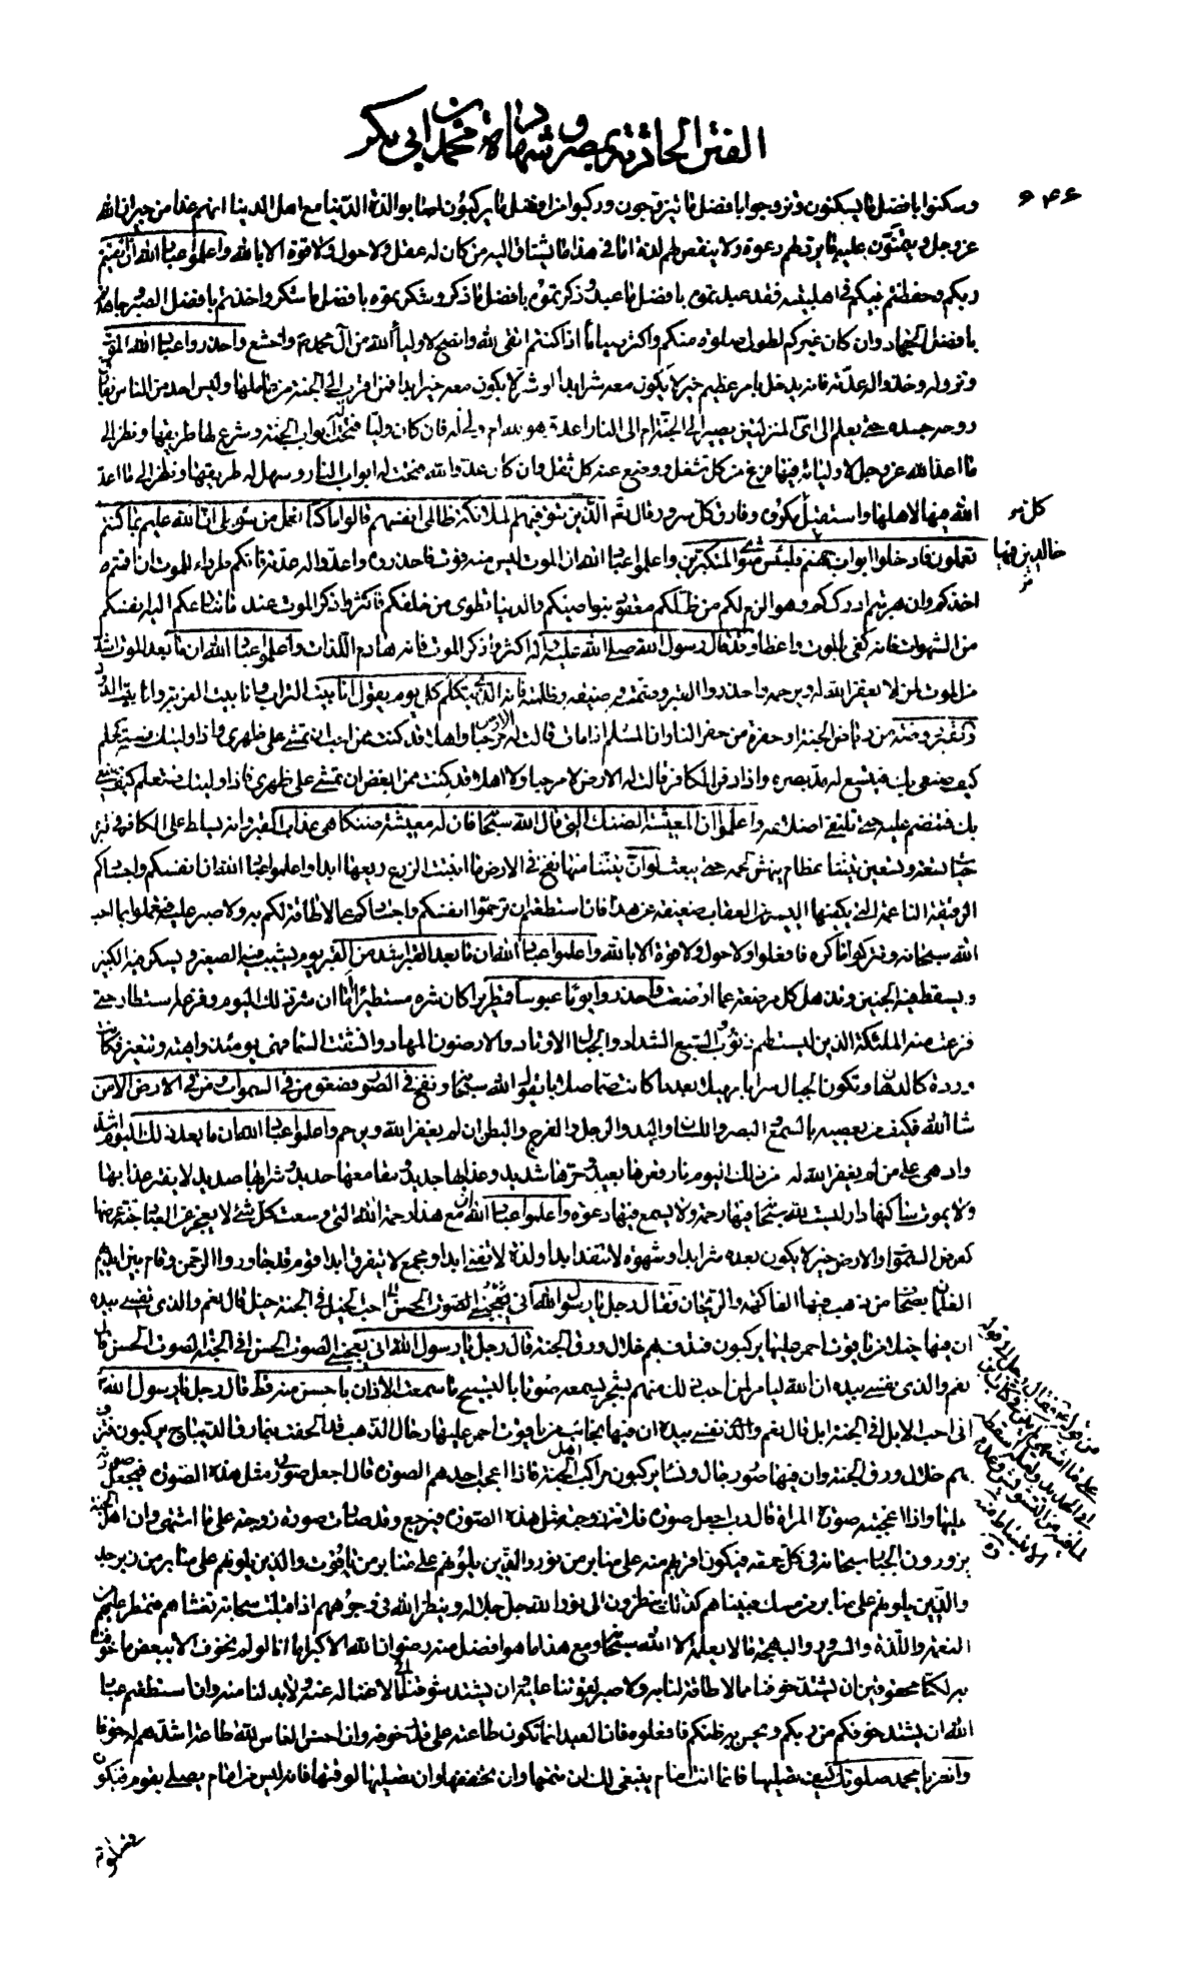 الفتن الحادثة بمصر و شهادة محمد بن ابی بکر
۶۴۶
وسكنوا بافضل ما يسكنون وتزوجوا بافضل ما يتزوجون وركبوا من افضل ما يركبون اصابوا لذة الدنيا مع اهل الدنيا انهم غدا من جيران الله
عز وجل يتمنون عليه ما يرد لهم دعوة ولا ينقص لهم لذة اما في هذا ما يشتاق اليه من كان له عقل ولا حول ولا قوة الا بالله واعلموا عباد الله ان اتقيتم
ربكم وحفظتم نبيكم في اهل بيته فقد عبدتموه بافضل ما عبد وذكرتموه بافضل ما ذكر وشكرتموه بافضل ما شكر واخذتم بافضل الصبر وجاهدتم
بافضل الجهاد وان كان غيركم اطول صلوة منكم واكثر صياما اذا كنتم اتقى لله وانصح لاولياء الله من آل محمد واخشع واحذروا عباد الله الموت
ونزوله وخذوا له عدته فانه يدخل بامر عظيم خير لا يكون معه شر ابدا او شر لا يكون معه خير ابدا فمن اقرب الى الجنة من عاملها وليس احد من الناس يفارق
روحه جسده حتى يعلم الى اى المنزلتين يصير الى الجنة ام الى النار اعدو هو لله ام ولى له فان كان وليا فتحت له ابواب الجنة وشرع لها طريقها ونظر الى
ما اعد الله عز وجل لاوليائه فيها فرغ من كل شغل ووضع عنه كل ثقل وان كان عدوا لله فتحت له ابواب النار وسهل له طريقها ونظر الى ما اعد
الله فيها لاهلها واستقبل كل مكروه وفارق كل سرور قال تعالى الذين تتوفيهم الملائكة ظالمى انفسهم قالوا ما كنا نعمل من سوء بلى ان الله عليم بما كنتم
تعملون فادخلوا ابواب جهنم خالدين فيها فلبئس مثوى المتكبرين واعلموا عباد الله ان الموت ليس منه فوت فاحذروه واعدوا له عدته فانكم طرداء للموت ان اقمتم
اخذكم وان هربتم ادرككم وهو الزم لكم من ظلكم معقود بنواصيكم والدنيا تطوى من خلفكم فاكثروا ذكر الموت عند ما تنازعكم اليه انفسكم
من الشهوات فانه كفى بالموت واعظا وقد قال رسول الله صلى الله عليه واله اكثروا ذكر الموت فانه هادم اللذات واعلموا عباد الله ان ما بعد الموت اشد
من الموت لمن لا يغفر الله له ويرحمه واحذروا القبر وضمته وضيقه وظلمته فانه الذى يتكلم كل يوم يقول انا بيت التراب وانا بيت الغربة وانا بيت الدود
والقبر روضة من رياض الجنة او حفرة من حفر النار وان المسلم اذا مات قالت له الارض مرحبا واهلا قد كنت ممن احب ان تمشى على ظهرى فاذا وليتك فستعلم
كيف صنعى بك فيتسع له مد بصره واذا دفن الكافر قالت له الارض لا مرحبا ولا اهلا قد كنت ممن ابغض ان تمشى على ظهرى فاذا وليتك فستعلم كيف صنعى
بك فتنضم عليه حتى تلتقى اضلاعه واعلموا ان المعيشة الضنك التى قال الله سبحانه فان له معيشة ضنكا هى عذاب القبر وانه يسلط على الكافر فى قبره
حيات تسعة وتسعين تنينا عظام ينهش لحمه حتى يبعث لو ان تنينا منها نفخ فى الارض ما انبتت الزرع ريعها ابدا واعلموا عباد الله ان انفسكم واجسادكم
الرقيقة الناعمة التى يكفيها اليسير من العقاب ضعيفة عن هذا فان استطعتم ان ترحموا انفسكم واجسادكم عما لا طاقة لكم به ولا صبر عليه فتعملوا بما احب
الله سبحانه وتتركوا ما كره فافعلوا ولا حول ولا قوة الا بالله واعلموا عباد الله ان ما بعد القبر اشد من القبر يوم يشيب فيه الصغير ويسكر فيه الكبير
ويسقط فيه الجنين وتذهل كل مرضعة عما ارضعت واحذروا يوما عبوسا قمطريرا كان شره مستطيرا اما ان شر ذلك اليوم وفزعه استطار حتى
فزعت منه الملئكة الذين ليست لهم ذنوب والسبع الشداد والجبال الاوتاد والارضون المهاد وانشقت السماء فهى يومئذ واهية وتتغير فكانت
وردة كالدهان وتكون الجبال سرابا مهيلا بعد ما كانت صما صلابا يقول الله سبحانه ونفخ فى الصور فصعق من فى السموات ومن فى الارض الا من
شاء الله فكيف من يعصيه بالسمع والبصر واللسان واليد والرجل والفرج والبطن ان لم يغفر الله ويرحم واعلموا عباد الله ان ما بعد ذلك اليوم اشد
وادهى على من لم يغفر الله له من ذلك اليوم نار قعرها بعيد وحرها شديد وعذابها جديد ومقامعها حديد وشرابها صديد لا يفتر عذابها
ولا يموت ساكنها دار ليست لله سبحانه فيها رحمة ولا يسمع فيها دعوة واعلموا عباد الله ان مع هذا رحمة الله التى وسعت كل شئ لا يعجز عن العباد جنة عرضها
كعرض السموات والارض خير لا يكون بعده شر ابدا وشهوة لا تنفد ابدا ولذة لا تفنى ابدا ومجمع لا يتفرق ابدا قوم قد جاوروا الرحمن وقام بين ايديهم
الغلمان بصحاف من ذهب فيها الفاكهة والريحان فقال رجل يا رسول الله انى احب الخيل افى الجنة خيل قال نعم والذى نفسى بيده
ان فيها خيلا من ياقوت احمر عليها يركبون فتدف بهم خلال ورق الجنة قال رجل يا رسول الله انى يعجبنى الصوت الحسن افى الجنة الصوت الحسن قال
نعم والذى نفسى بيده ان الله ليامر لمن احب ذلك منهم بشجر يسمعه صوتا بالتسبيح ما سمعت الاذان باحسن منه قط قال رجل يا رسول الله
انى احب الابل افى الجنة ابل قال نعم والذى نفسى بيده ان فيها نجائب من ياقوت احمر عليها رحال الذهب قد الحفت بنمارق الديباج يركبون فتزف
بهم خلال ورق الجنة وان فيها صور رجال ونساء يركبون مراكب اهل الجنة فاذا اعجب احدهم الصورة قال اجعل صورتى مثل هذه الصورة فيجعل صورته
عليها واذا اعجبته صورة المراة قال رب اجعل صورة فلانة زوجته مثل هذه الصورة فيرجع وقد صارت صورة زوجته على ما اشتهى وان اهل الجنة
يزورون الجبار سبحانه فى كل جمعة فيكون اقربهم منه على منابر من نور والذين يلونهم على منابر من ياقوت والذين يلونهم على منابر من زبرجد
والذين يلونهم على منابر من مسك فبينا هم كذلك ينظرون الى نور الله جل جلاله وينظر الله فى وجوههم اذا اقبلت سحابة تغشاهم فتمطر عليهم من
النعمة واللذة والسرور والبهجة ما لا يعلمه الا الله سبحانه ومع هذا ما هو افضل منه رضوان الله الاكبر اما انا لو لم نخوف الا ببعض ما خوفنا
به لكنا محقوقين ان يشتد خوفنا مما لا طاقة لنا به ولا صبر لقوتنا عليه وان يشتد شوقنا الى ما لا غنا لنا عنه ولا بد لنا منه وان استطعتم عباد
الله ان يشتد خوفكم من ربكم ويحسن به ظنكم فافعلوه فان العبد انما تكون طاعته على قدر خوفه وان احسن الناس لله طاعة اشدهم له خوفا
وانظر يا محمد صلوتك كيف تصليها فانما انت امام ينبغى لك ان تتمها وان تخففها وان تصليها لوقتها فانه ليس من امام يصلى بقوم فيكون
كل
خالدين فيها